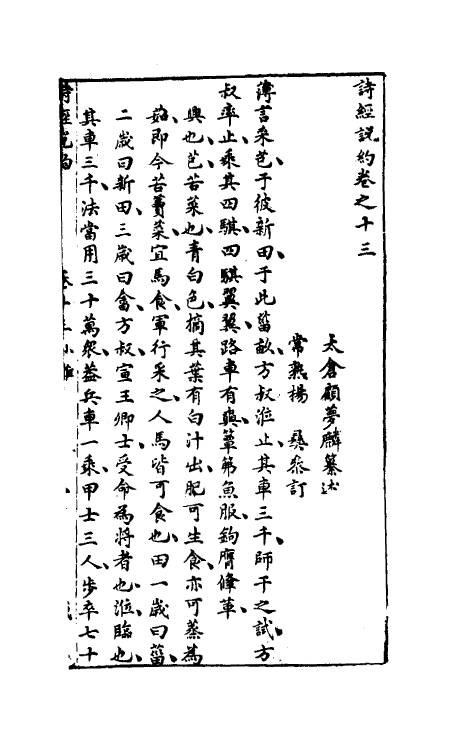 詩經說約卷之十三
太倉顧夢麟纂述
常熟楊彝參訂
薄言采芑于彼新田于此菑畝方叔涖止其車三千師干之試方
叔率止乘其四騏四騏翼翼路車有奭簟茀魚服鉤膺鞗革
興也芑苦菜也青白色摘其葉有白汁出肥可生食亦可蒸為
茹即今苦蕒菜宜馬食軍行采之人馬皆可食也田一歲曰菑
二歲曰新田三歲曰畬方叔宣王卿士受命為將者也涖臨也
其車三千法當用三十萬衆蓋兵車一乘甲士三人步卒七十